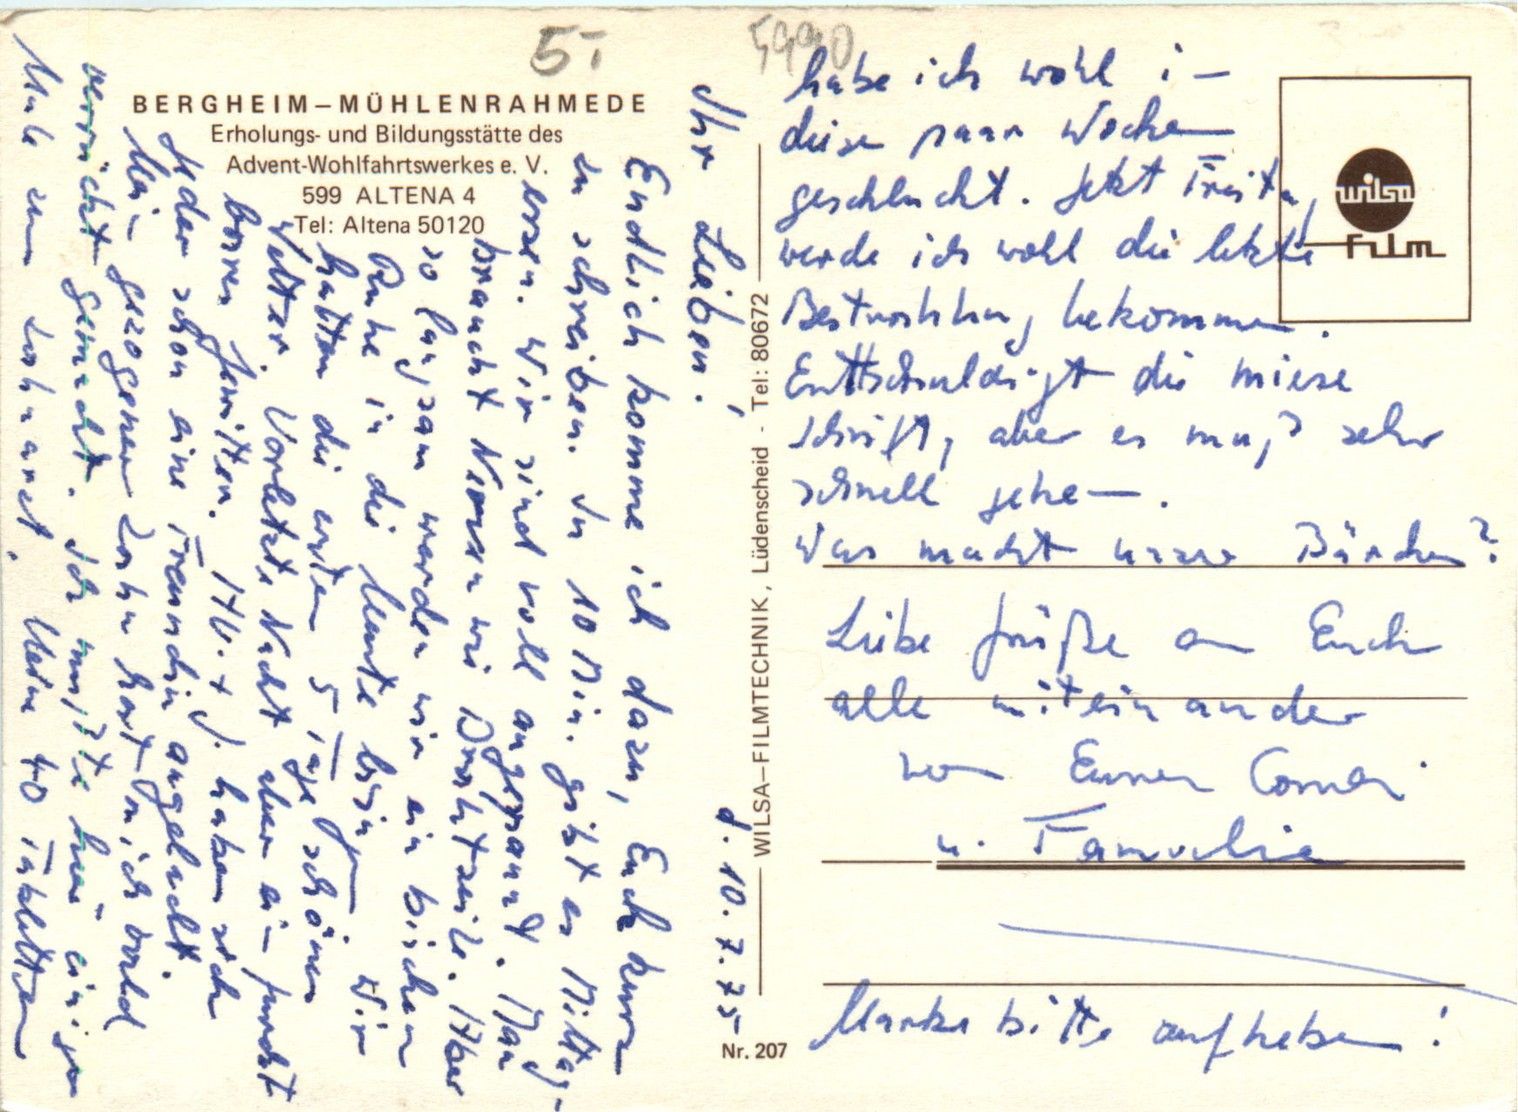 5,-
5990
BERGHEIM–MÜHLENRAHMEDE
Erholungs- und Bildungsstätte des
Advent-Wohlfahrtswerkes e. V.
599 ALTENA 4
Tel: Altena 50120
d. 10.7.75
Ihr Lieben!
Endlich komme ich dazu, Euch kurz
zu schreiben. In 10 Min. gibt es Mittag-
essen. Wir sind voll angespannt. Man
braucht Nerven wie Drahtseile. Aber
so langsam werden wir ein bischen
Ruhe in die Meute bringen. Wir
hatten die ersten 5 Tage schönes
Wetter. Vorletzte Nacht aber ein furcht
bares Gewitter. 
haben sich
jeder schon eine Freundin angelacht.
Mein gezogener Zahn hat mich bald
verrückt gemacht. Ich mußte hier einigen
Male zum Zahnarzt. Meine 40 Tabletten
habe ich wohl in
diesen paar Wochen
geschluckt. Jetzt Freitag
werde ich wohl die letzte
Bestrahlung bekommen.
Enttschuldigt die miese
Schrift, aber es muß sehr
schnell gehen.
Was macht unser Bärchen?
Liebe Grüße an Euch
alle miteinander
von Eurer
u. Familie
Marke bitte aufheben!
wilsa
Film
WILSA–FILMTECHNIK, Lüdenscheid - Tel: 80672
Nr. 207